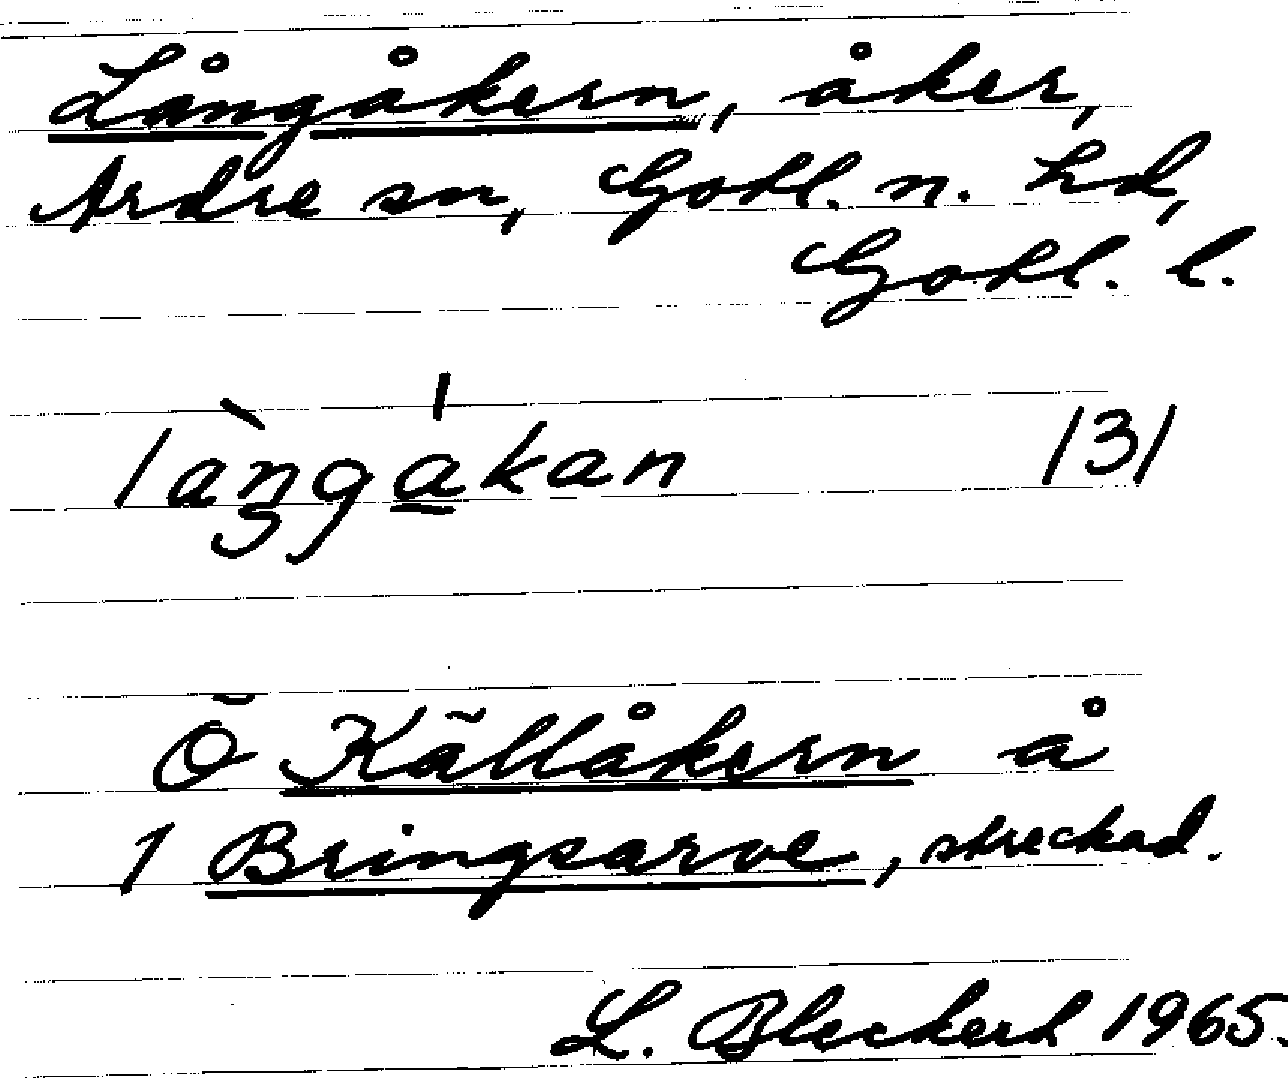 Långåkern, åker,
Ardre sn, Gotl. n. hd,
Gotl. l.
làŋga̲ˈkan /3/
Ö Källåkern å
1 Bringsarve, streckad.
L. Bleckert 1965.